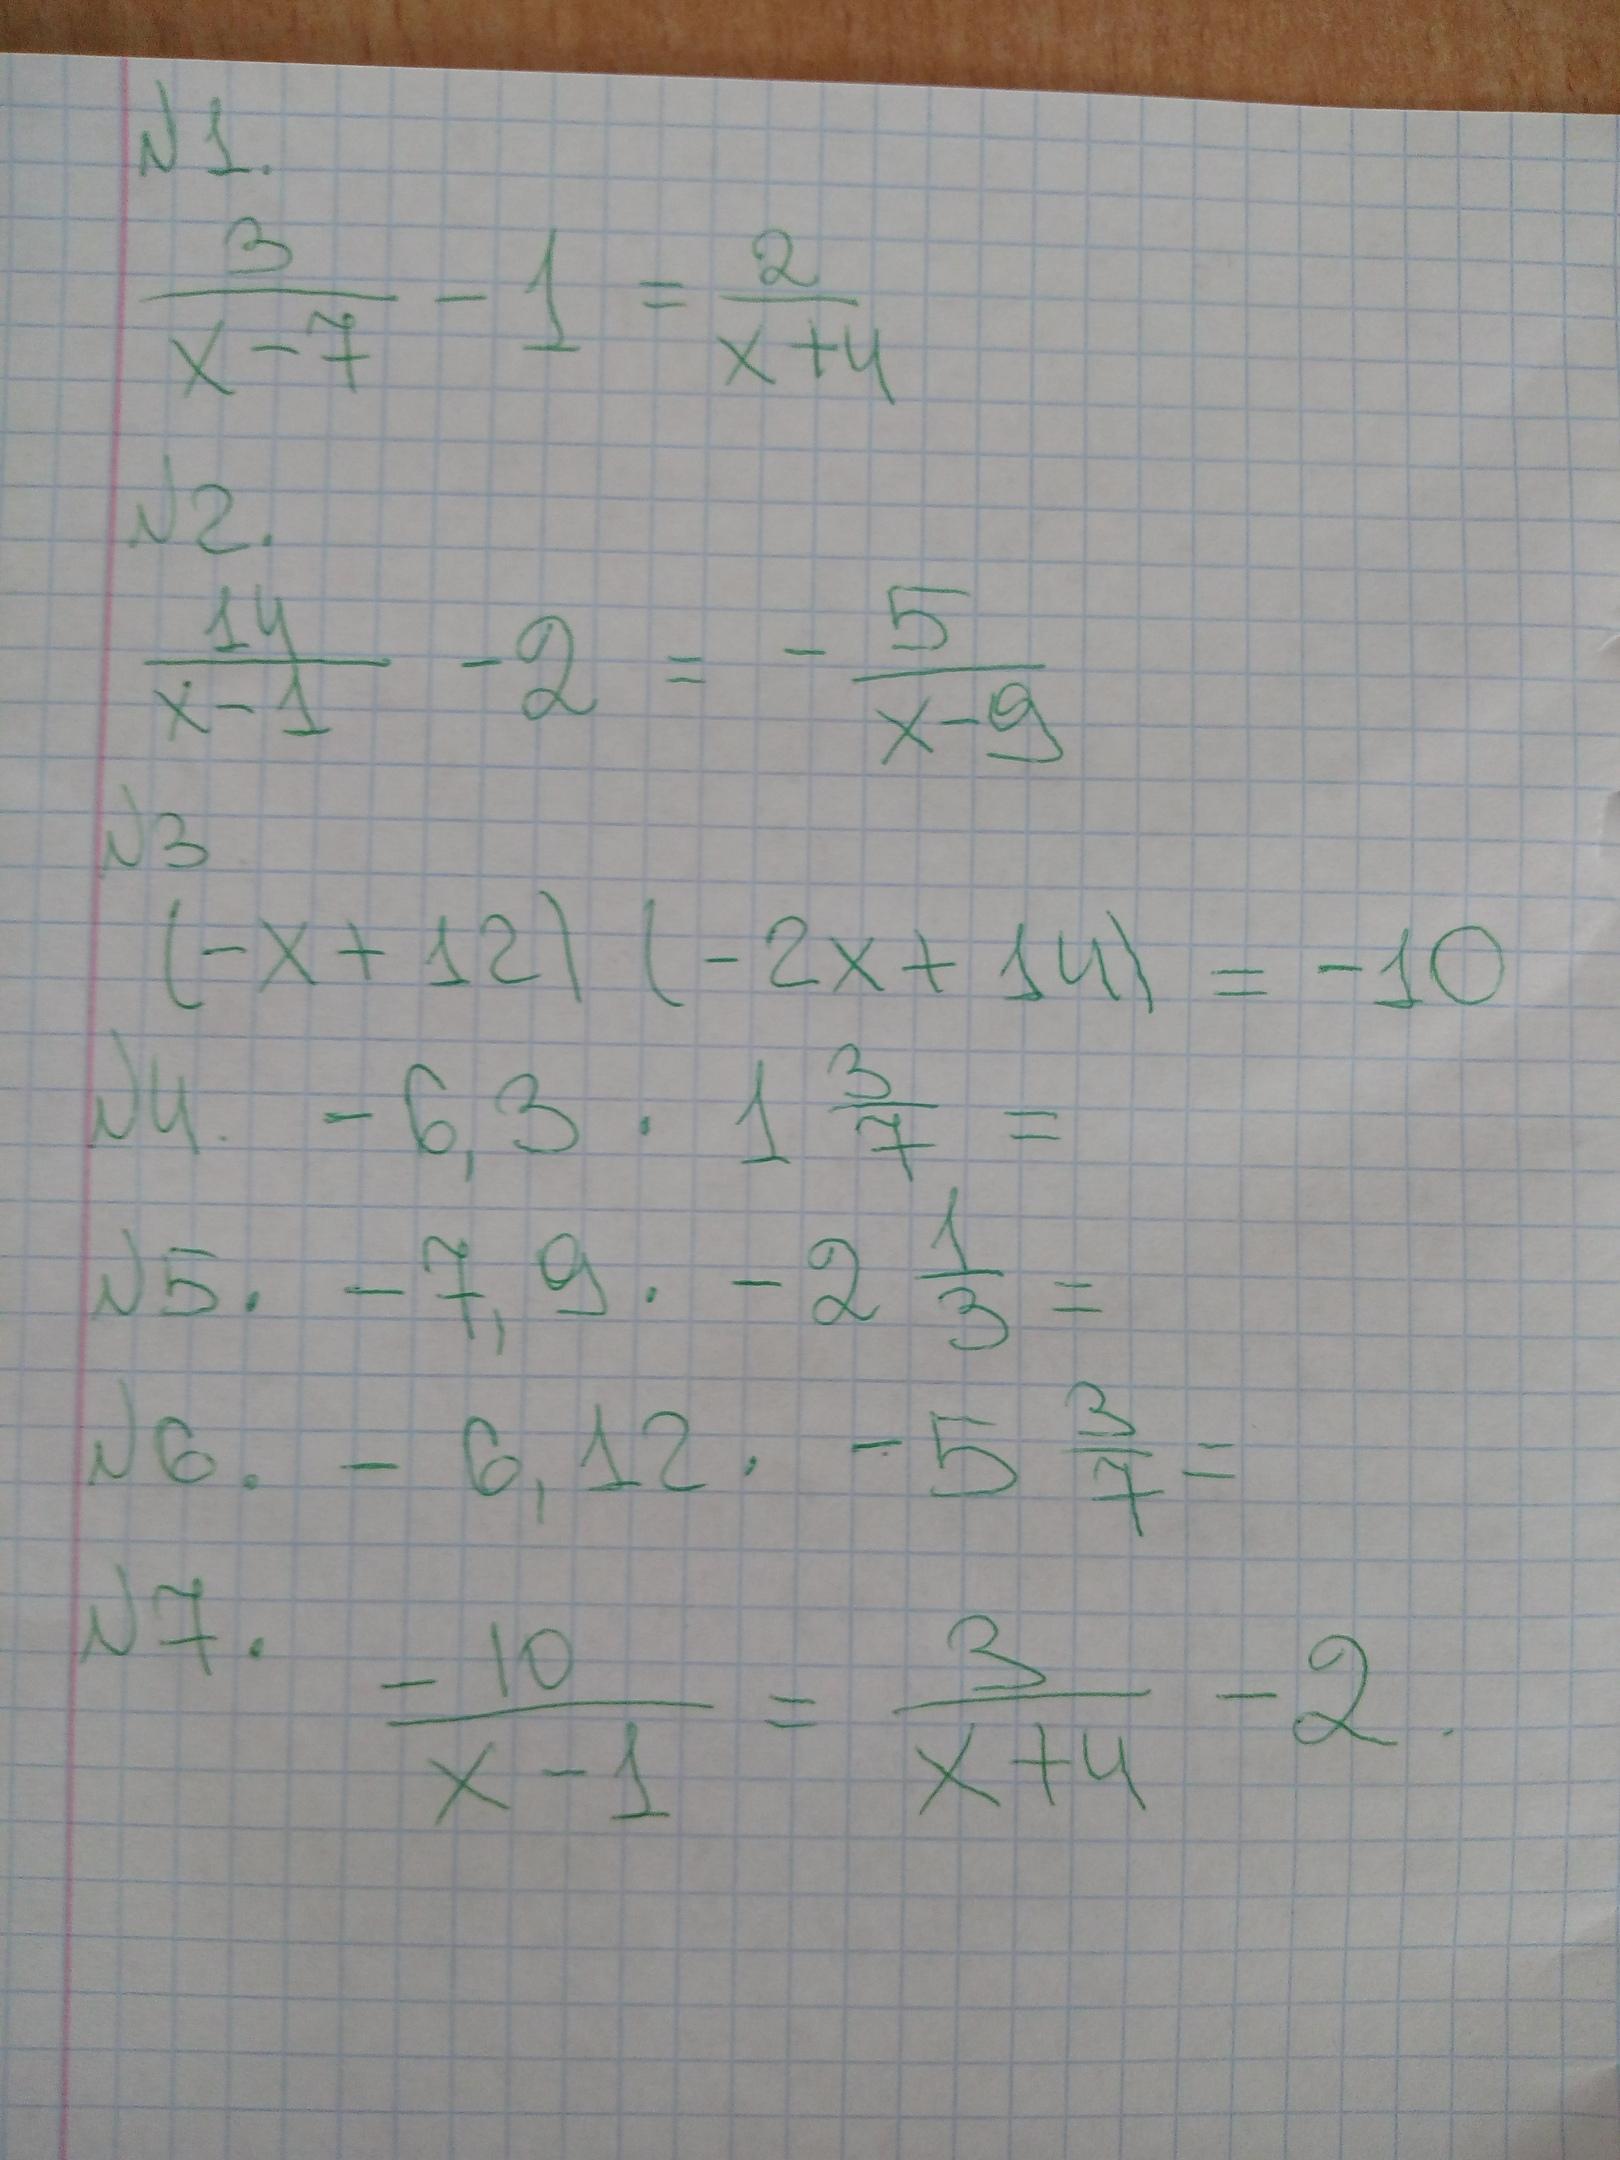 №1.
3/(x-7) - 1 = 2/(x+4)
№2.
14/(x-1) - 2 = - 5/(x-9)
№3
(-x+12) (-2x+14) = -10
№4. -6,3 · 1 3/7 =
№5. -7,9 · -2 1/3 =
№6. -6,12 · -5 3/7 =
№7. -10/(x-1) = 3/(x+4) - 2.